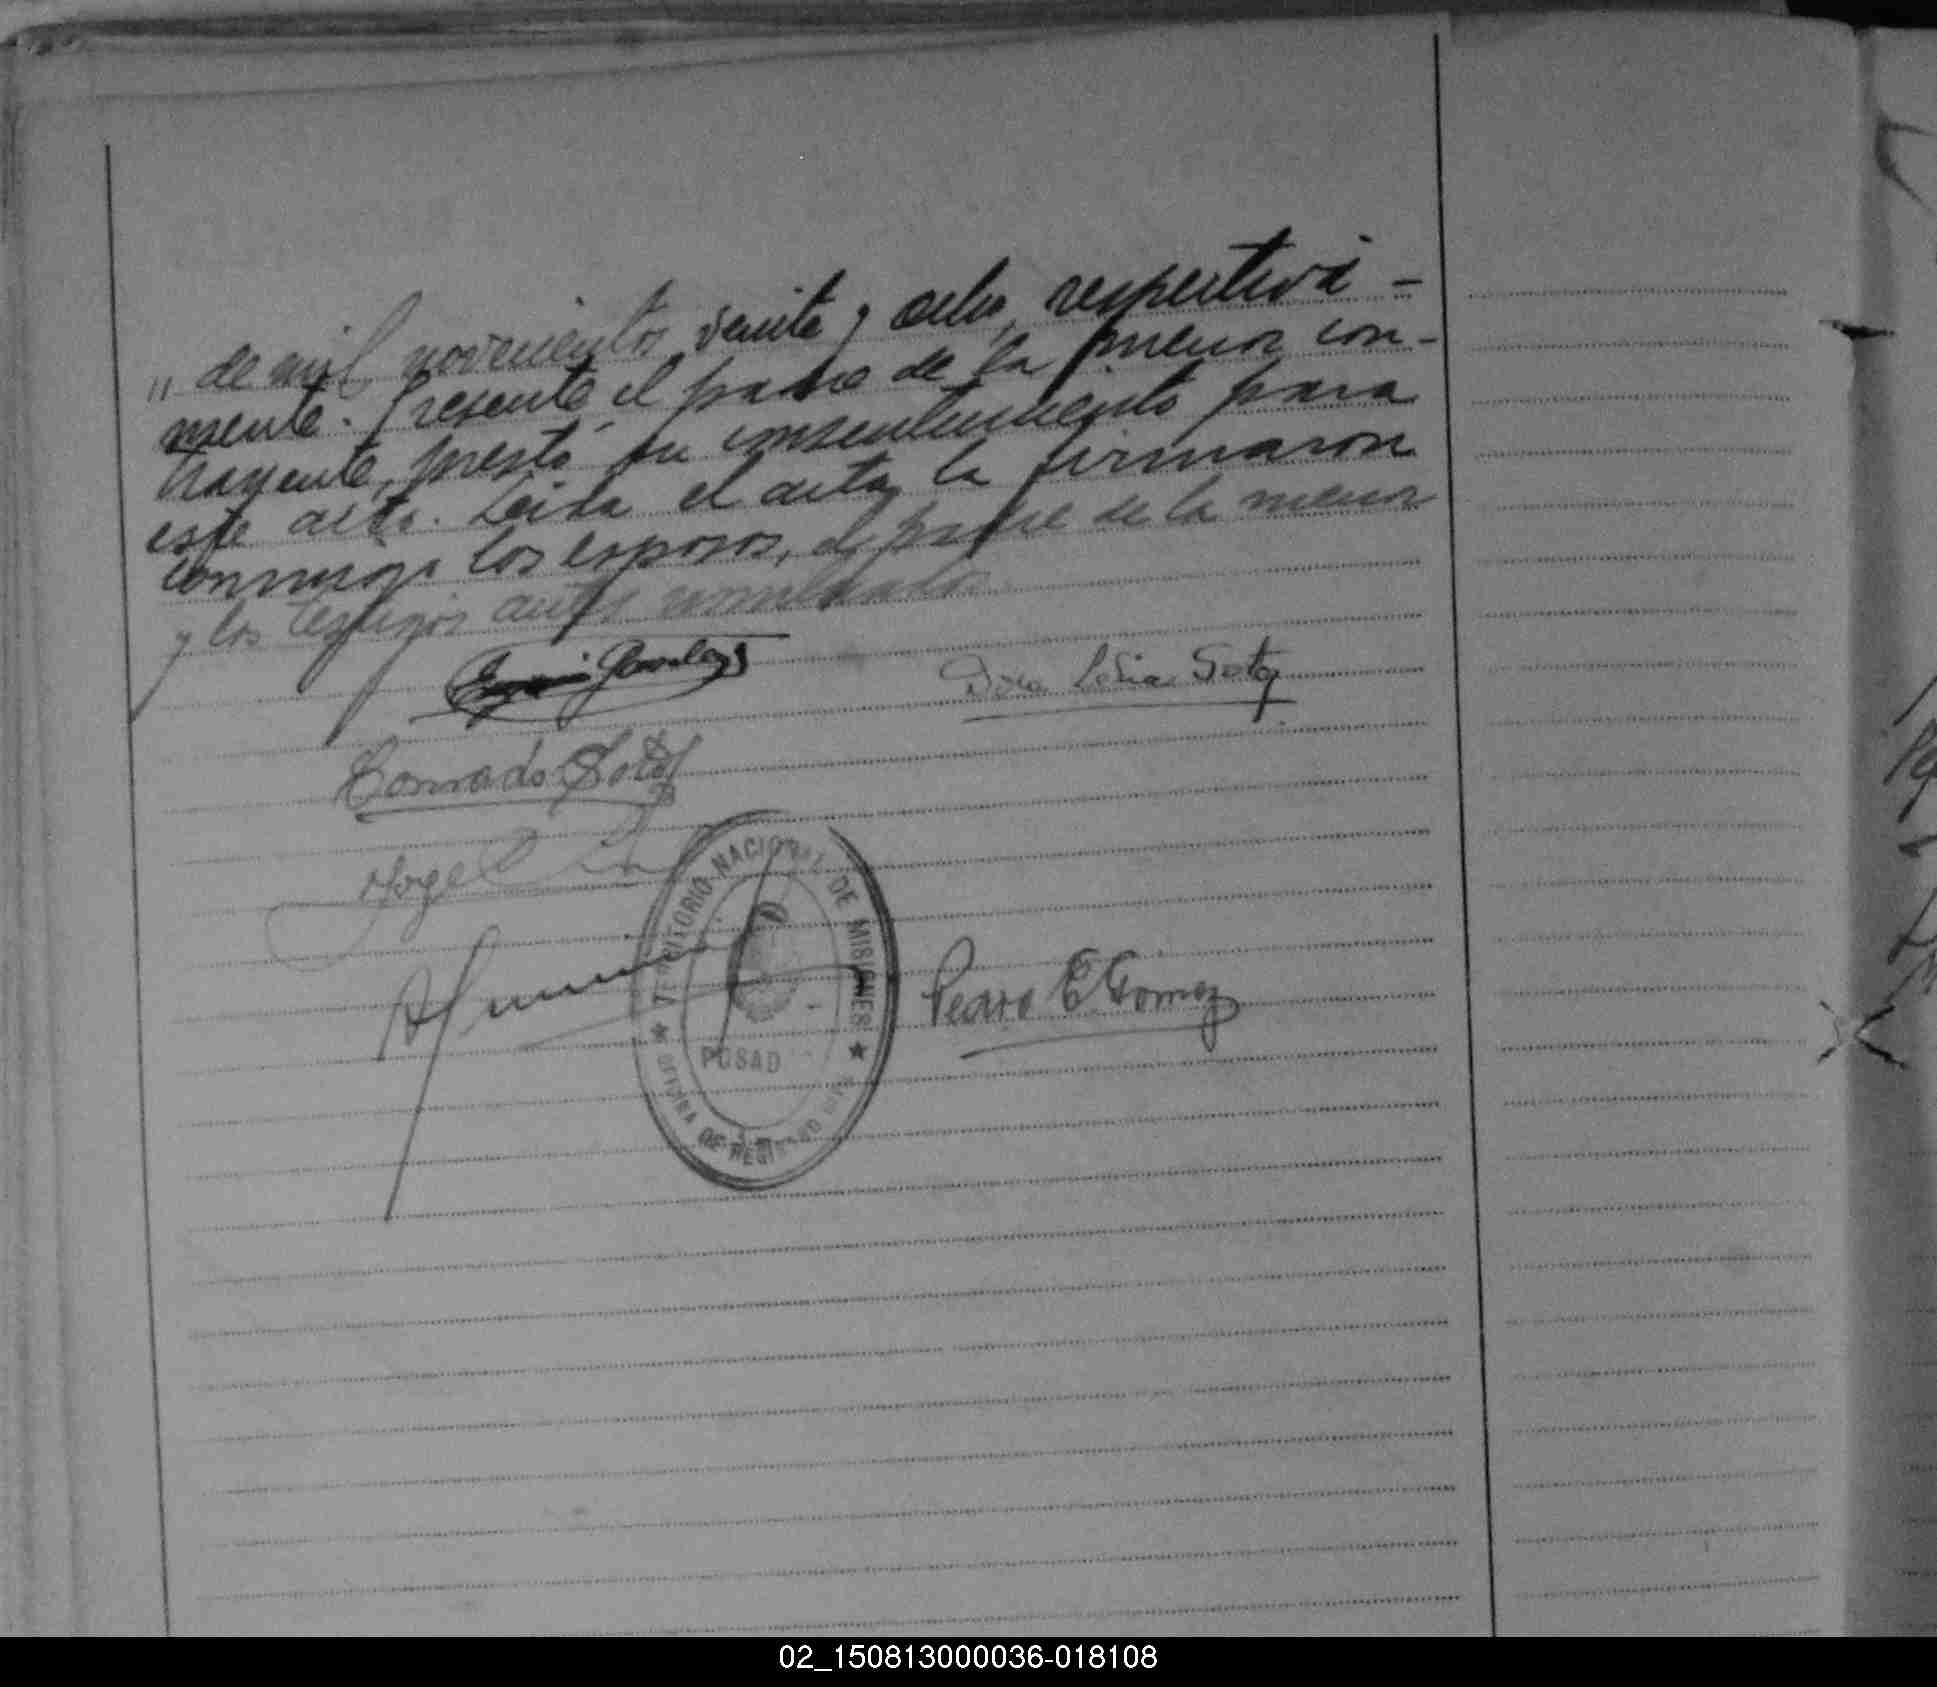 „ de mil novecientos veinte y ocho, respectiva -
mente. Presente el padre de la menor con-
trayente, prestó su consentimiento para
este acto. Leida el acta, la firmaron
conmigo los esposos, el padre de la menor
y los testigos antes nombrados.
Dora Lelia Soto
Conrado Soto
Jorge
Pedro E. Gomez
TERRITORIO NACIONAL DE MISIONES
POSAD
OFICINA DE REGISTRO CIVIL
02_150813000036-018108